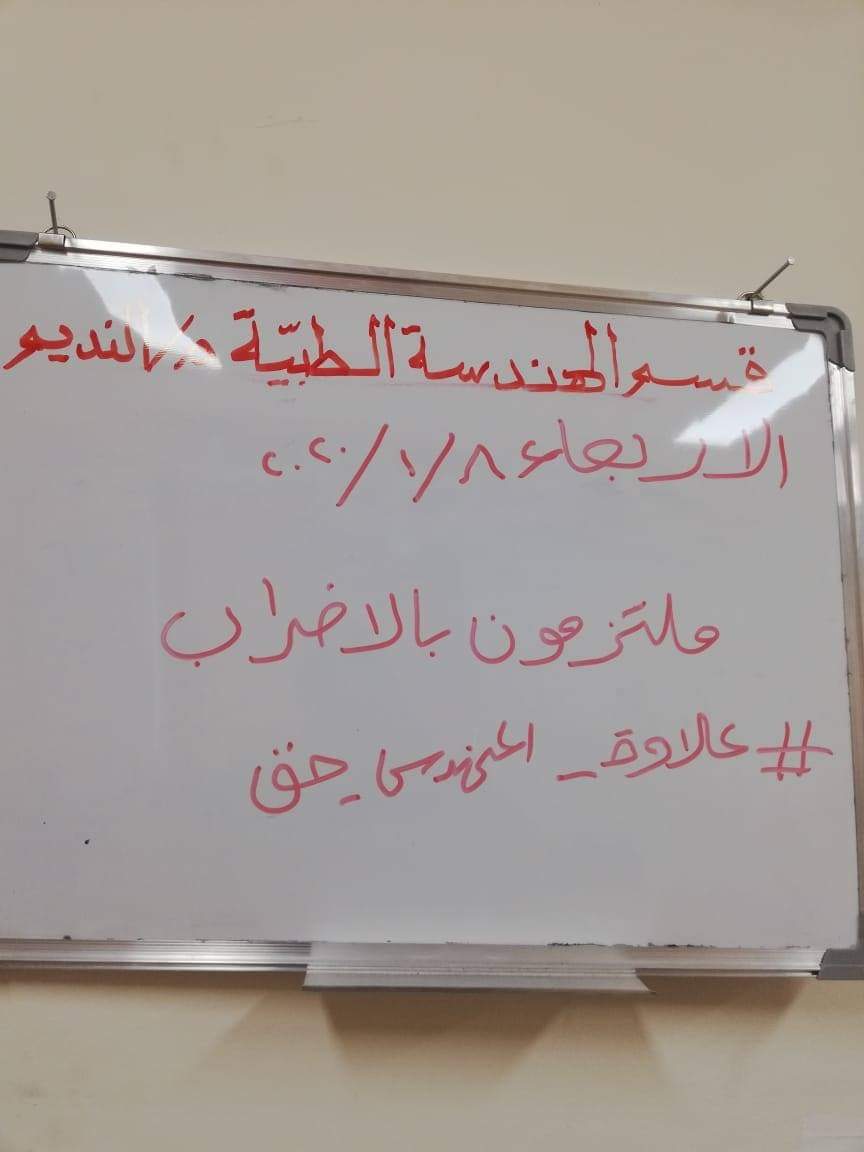 قسم الهندسة الطبيّة م/النديم
الاربعاء ٢٠٢٠/١/٨
ملتزمون بالاضراب
#علاوة_المهندس_حق